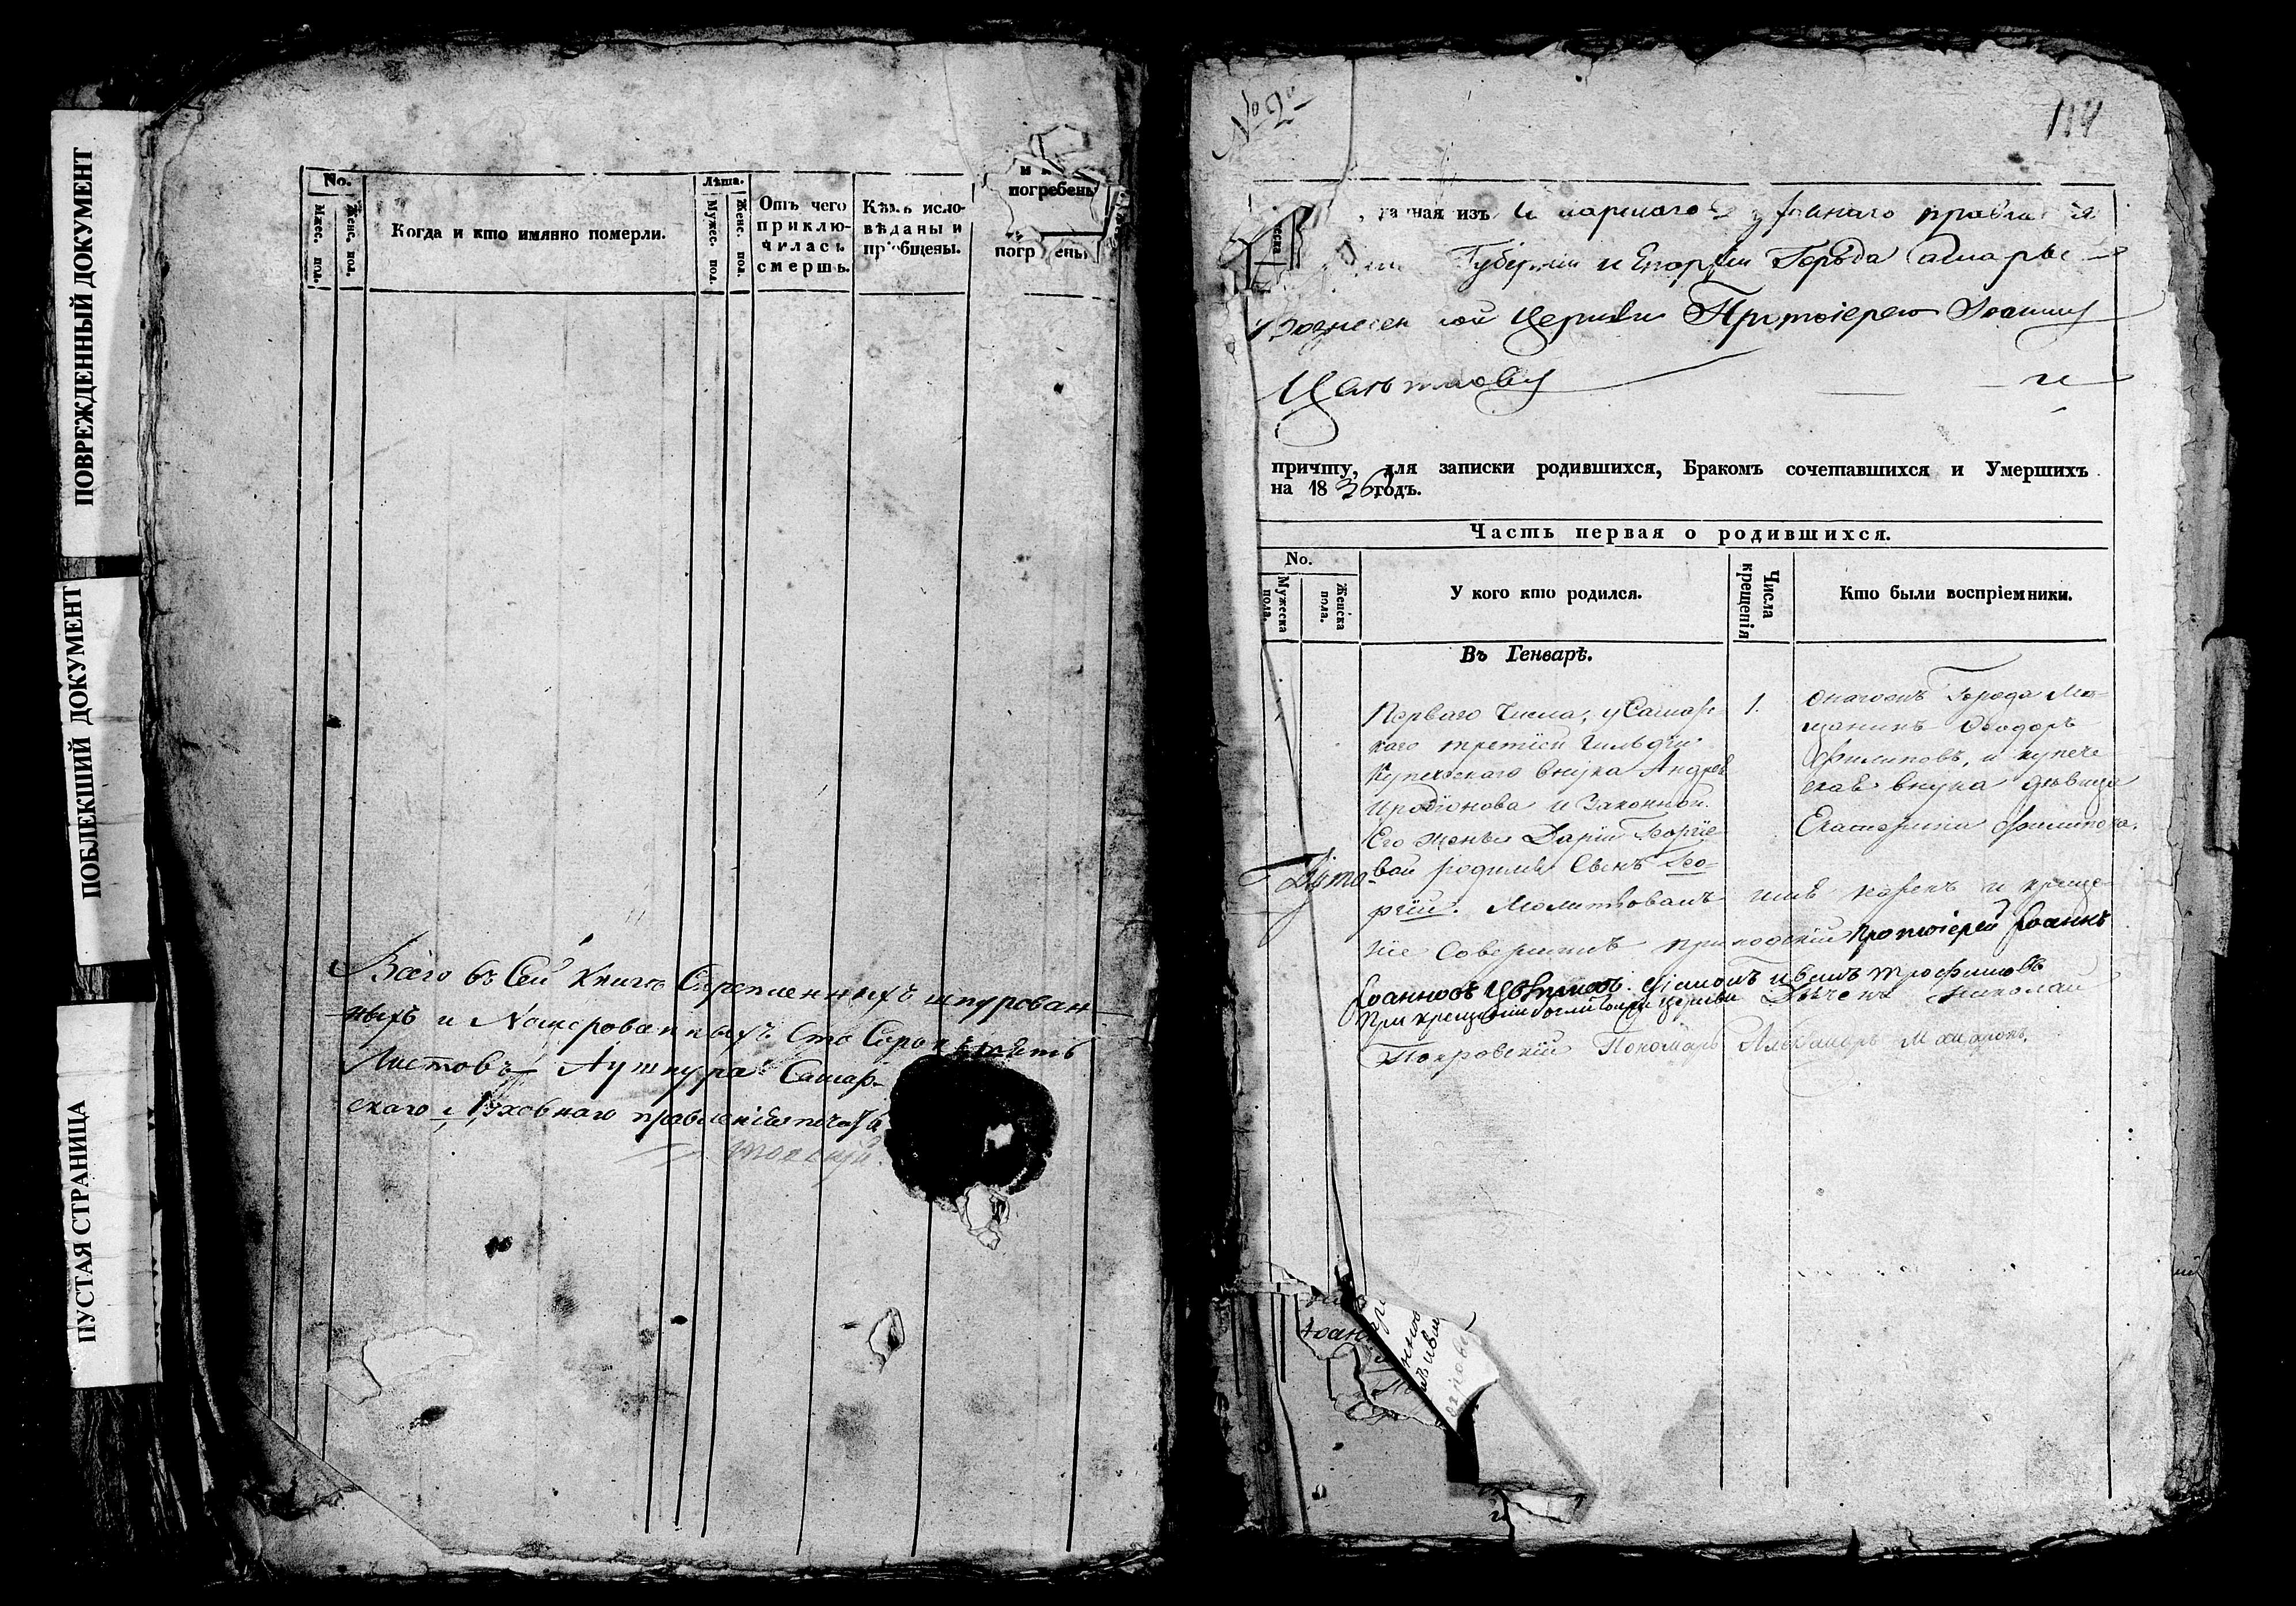 ПОВРЕЖДЕННЫЙ ДОКУМЕНТ
ПОБЛЕКШИЙ ДОКУМЕНТ
ПУСТАЯ СТРАНИЦА
No.
Мужес. пол.
Женс. пол.
Когда и кто имянно померли.
Лѣта.
Мужес. пол.
Женс. пол.
Отъ чего
приклю-
чилась
смерть.
Кѣмъ испо-
вѣданы и
пр общены.
погребены
погр ены
Всего въ Сей Книгѣ Скрепленныхъ шнурован
ныхъ и Номерованныхъ Сто Сорокъ пять
Листовъ Самар-
скаго Духовнаго правленія печать
№ 2й
114
данная изъ Самарскаго Духовнаго правленія
Губерніи и Епархіи Города Самары
Вознесен кой Церкви Протоіерею Іоанну
Цвѣткову и
причту, для записки родившихся, Бракомъ сочетавшихся и Умершихъ
на 1836 годъ.
Часть первая о родившихся.
No.
Мужеска пола.
Женска пола.
У кого кто родился.
Числа крещенія
Кто были воспріемники.
Въ Генварѣ.
Перваго Числа, у Самарс-
каго третьей гильдіи
Купеческаго внука Андрея
Иродіонова и Законной
Его жены Дарьи Георгіе-
вой родился Сынъ Гео-
ргій. Молитвовалъ имя нарекъ и креще-
ніе Совершилъ приходскій Протоіерей Іоаннъ
Іоанновъ Цвѣтковъ.
При крещеніи были Дьяконъ Николай
Покровскій Пономарь Александръ
1.
Онагожъ Города Мѣ-
щанинъ Ѳеодоръ
Филиповъ, и купече-
ская внука дѣвица
Екатерина Филипова.